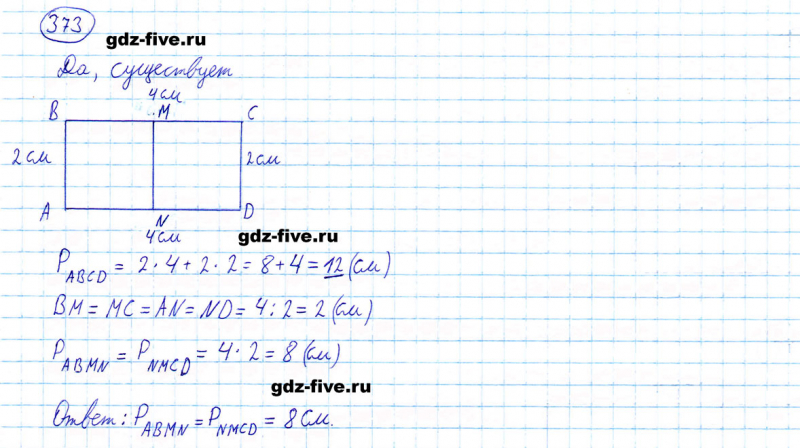 373
gdz-five.ru
Да, существует
4 см
B M C
2 см 2 см
A N D
4 см
gdz-five.ru
P ABCD = 2 · 4 + 2 · 2 = 8 + 4 = 12 (см)
BM = MC = AN = ND = 4 : 2 = 2 (см)
P ABMN = P NMCD = 4 · 2 = 8 (см)
gdz-five.ru
Ответ: P ABMN = P NMCD = 8 см.